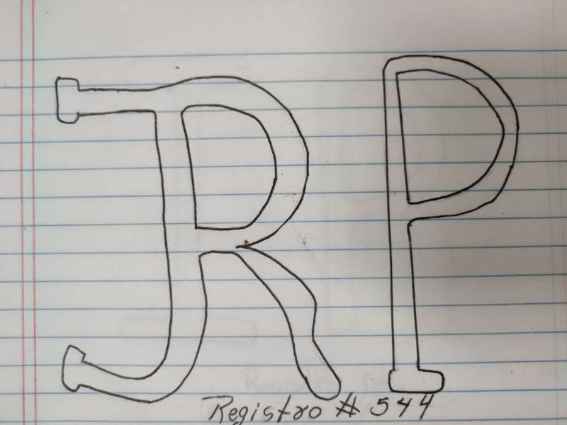 JR P
Registro # 544